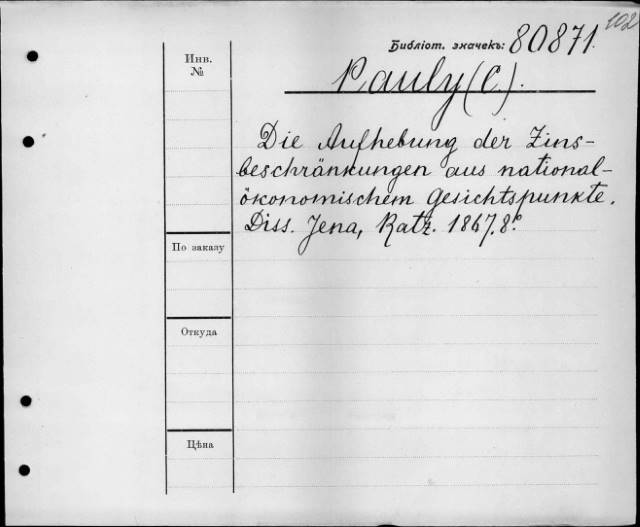 102
Библіот. значекъ: 80871.
Инв.
№
Pauly (C).
Die Aufhebung der Zins-
beschränkungen aus national-
ökonomischem Gesichtspunkte.
Diss. Jena, Ratz. 1867. 8º
По заказу
Откуда
Цѣна